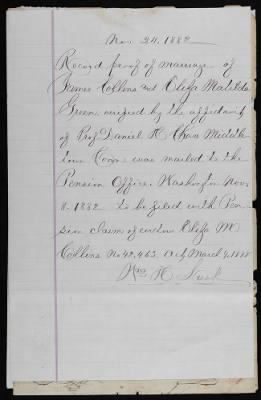 Nov 24, 1882
Record proof of marriage of
James Collins and Eliza Matilda
Green verified by the affidavit
of Prof Daniel H Chase Middle
town Conn were mailed to the
Pension Office, Washington Nov
8. 1882 to be filed with Pen-
sion claim of widow Eliza M
Collins No 42,463. Act March 9, 1878
H